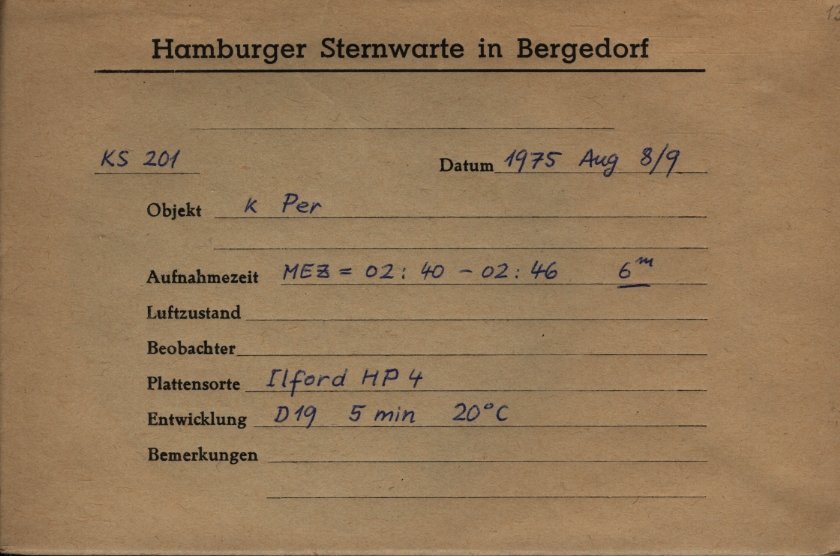 Hamburger Sternwarte in Bergedorf
KS 201 Datum 1975 Aug 8/9
Objekt κ Per
Aufnahmezeit MEZ = 02 : 40 - 02 : 46 6ᵐ
Luftzustand
Beobachter
Plattensorte Ilford HP 4
Entwicklung D19 5 min 20°C
Bemerkungen